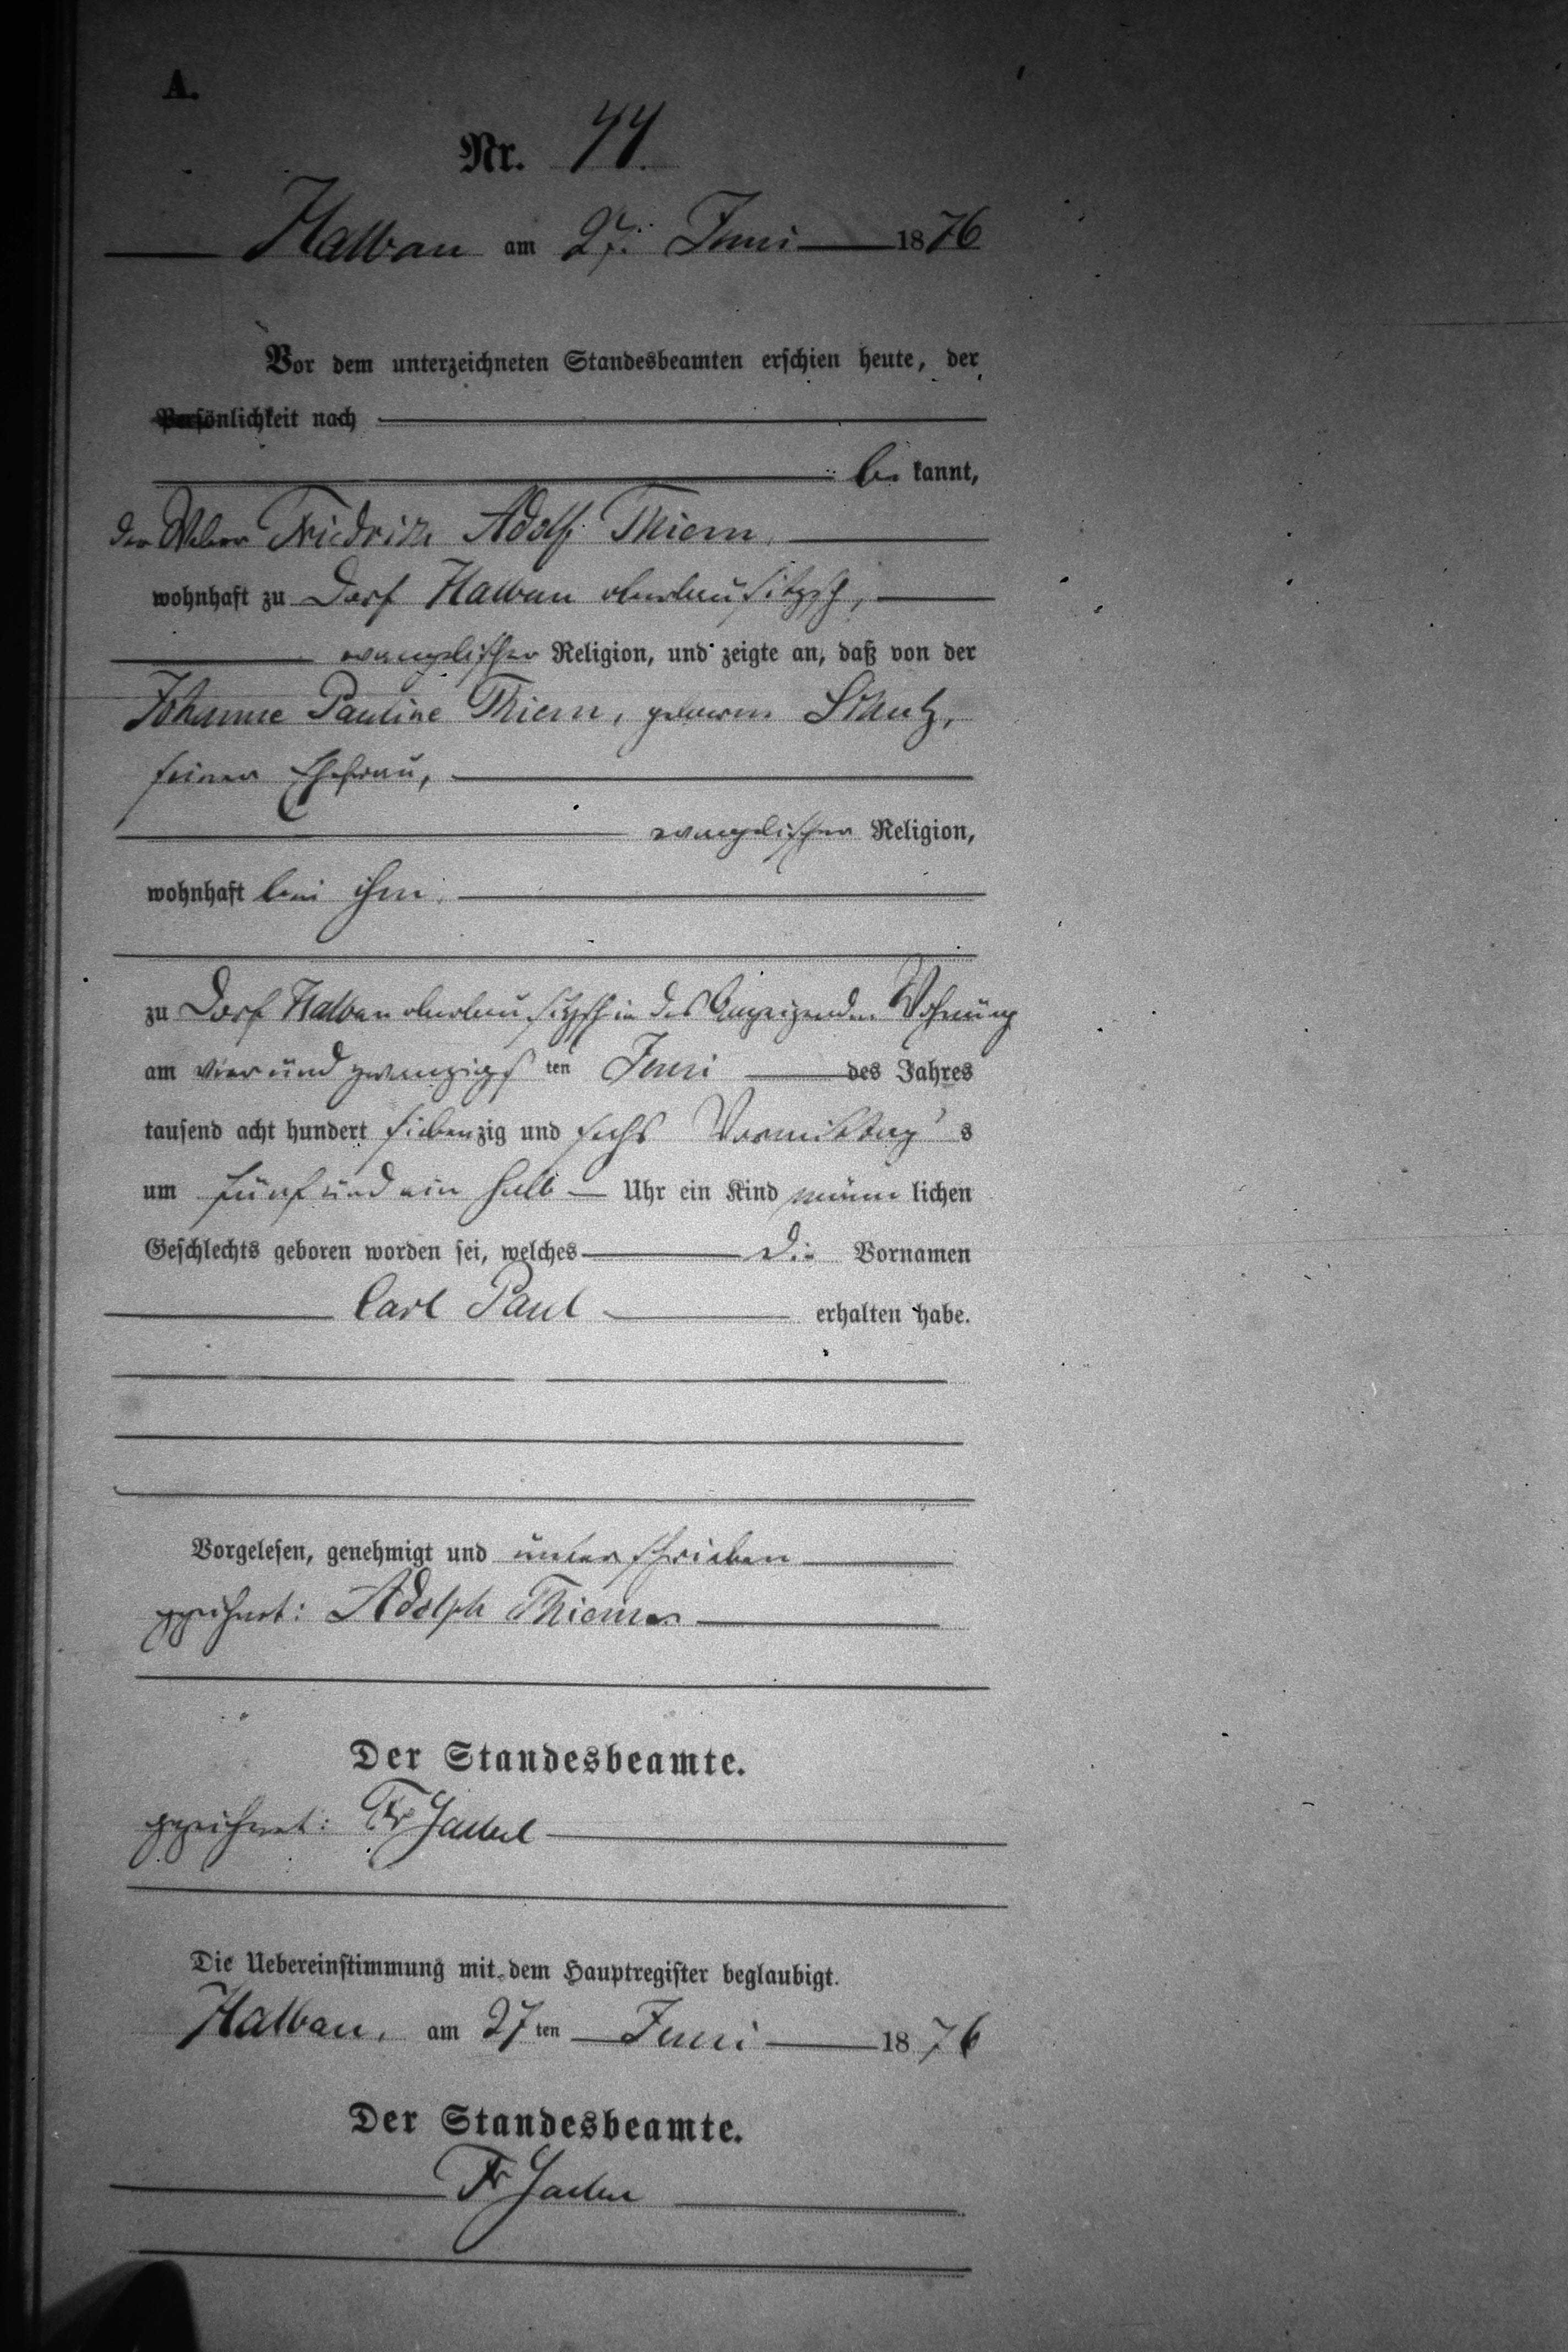 A.
Nr. 44.
Halbau am 27. Juni 1876
Vor dem unterzeichneten Standesbeamten erschien heute, der
Persönlichkeit nach
be kannt,
der Weber Friedrich Adolf Thiem,
wohnhaft zu Dorf Halbau oberlausitzsch,
evangelischer Religion, und zeigte an, daß von der
Johanne Pauline Thiem, geborne
seiner Ehefrau,
evangelischer Religion,
wohnhaft bei ihm
zu Dorf Halbau oberlausitzsch in des Anzeigenden Wohnung
am vier und zwanzigs ten Juni des Jahres
tausend acht hundert siebenzig und sechs Vormittag s
um fünf und ein halb Uhr ein Kind männ lichen
Geschlechts geboren worden sei, welches die Vornamen
Carl Paul erhalten habe.
Vorgelesen, genehmigt und unterschrieben
gezeichnet: Adolph
Der Standesbeamte.
gezeichnet: Fr
Die Uebereinstimmung mit dem Hauptregister beglaubigt.
Halbau, am 27 ten Juni 1876
Der Standesbeamte.
Fr